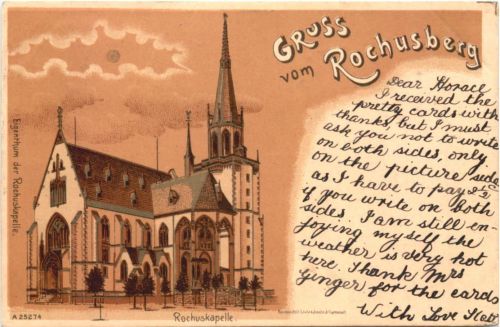 Gruss
vom Rochusberg
Dear Horace
I received the
pretty cards with
thanks, but I must
ask you not to write
on both sides, only
on the picture side
as I have to pay 2½
if you write on both
sides. I am still en-
joying myself the
weather is very hot
here. Thank Mrs
Ginger for the cards
With Love
Eigenthum der Rochuskapelle.
A 25274
Rochuskapelle.